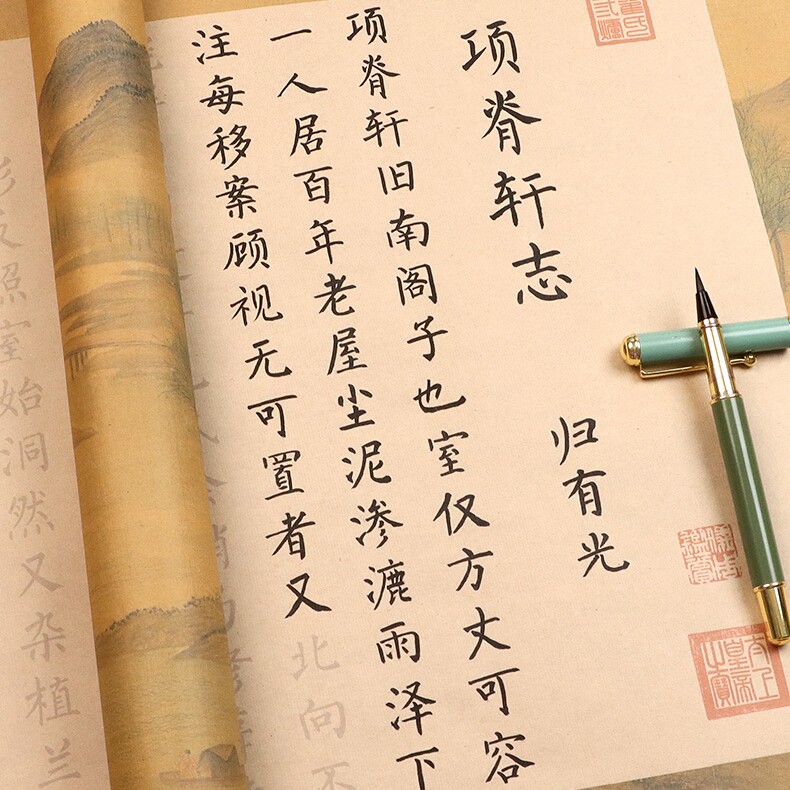 项脊轩志
归有光
项脊轩旧南阁子也室仅方丈可容
一人居百年老屋尘泥渗漉雨泽下
注每移案顾视无可置者又北向不
影反照室始洞然又杂植兰